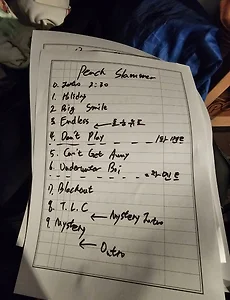 Peach Slammer
0. Intro 2:30
1. Holiday
2. Big Smile
3. Endless ←
4. Don't Play
5. Can't Get Away
6. Underwater Boi
7. Blackout
8. T.L.C ← Mystery Intro
9. Mystery
← Outro